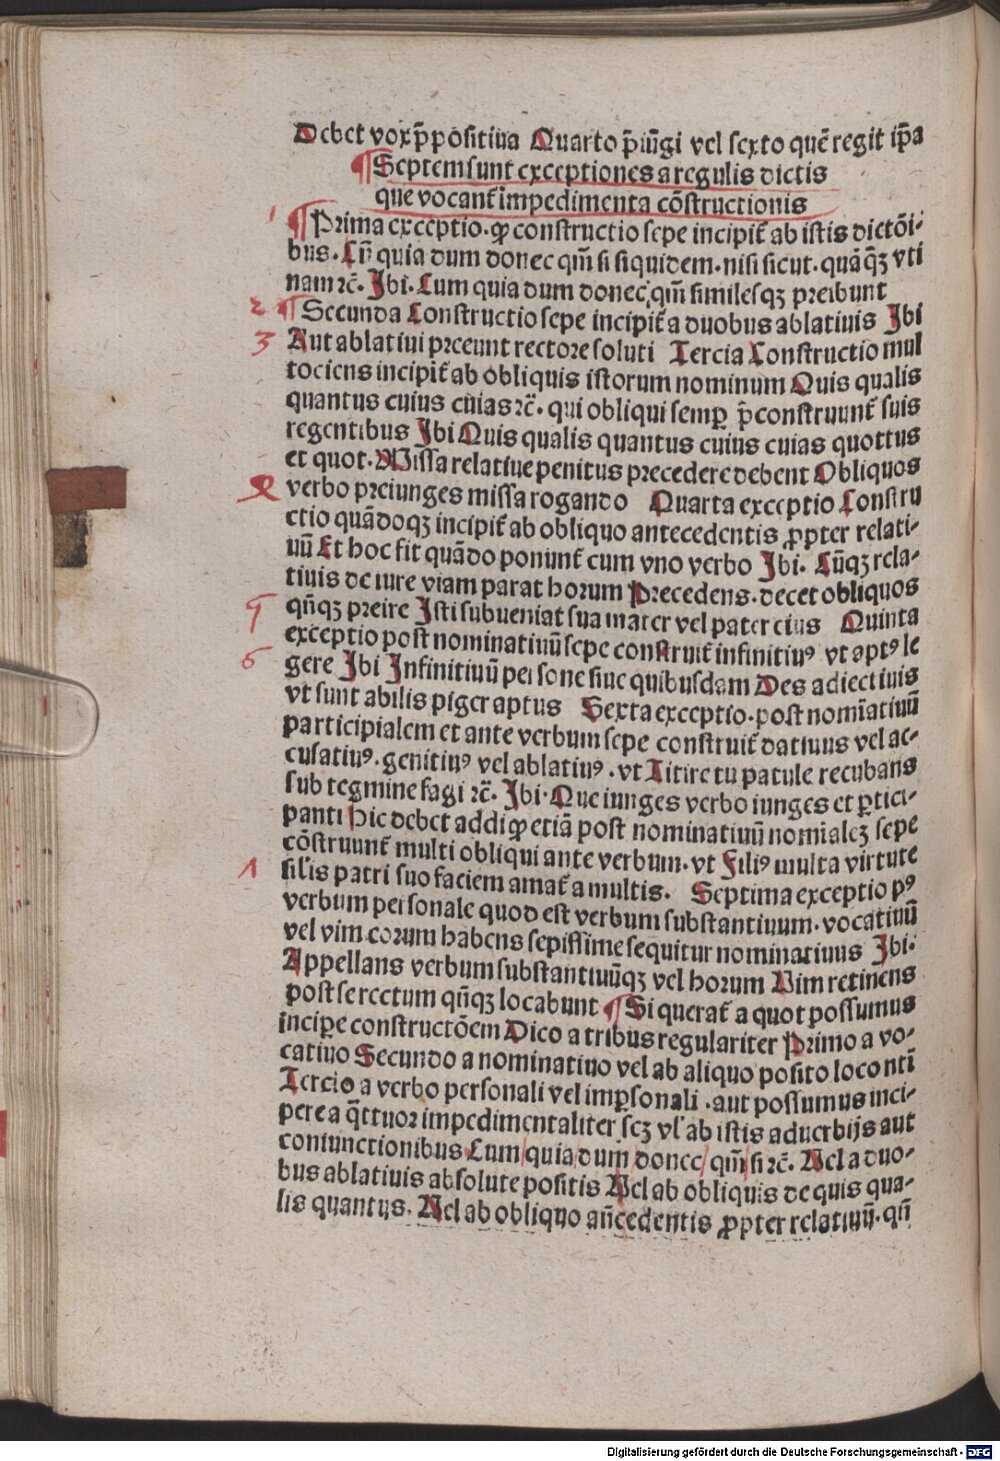 Debet vox p̄positiua Quarto p̄iūgi vel sexto quē regit ip̄a
¶Septem sunt exceptiones a regulis dictis
que vocant᷑ impedimenta cōstructionis
1 ¶Prima exceptio. ꝙ constructio sepe incipit᷑ ab istis dictōi-
bus. Cū quia dum donec qm̄ si siquidem. nisi sicut. quāqꝫ vti
nam ⁊c̄. Ibi. Cum quia dum donec qm̄ similesqꝫ preibunt
2 ¶Secunda Constructio sepe incipit᷑ a duobus ablatiuis Ibi
3 Aut ablatiui preeunt rectore soluti Tercia Constructio mul
tociens incipit᷑ ab obliquis istorum nominum Quis qualis
quantus cuius cuias ⁊c̄. qui obliqui semꝑ p̄construunt᷑ suis
regentibus Ibi Quis qualis quantus cuius cuias quottus
et quot. Missa relatiue penitus precedere debent Obliquos
4 verbo preiunges missa rogando Quarta exceptio Constru
ctio quādoqꝫ incipit᷑ ab obliquo antecedentis ꝓpter relati-
uū Et hoc fit quādo ponunt᷑ cum vno verbo Ibi. Cūqꝫ rela-
tiuis de iure viam parat horum Precedens. decet obliquos
5 qn̄qꝫ preire Isti subueniat sua mater vel pater eius Quinta
exceptio post nominatiuū sepe construit᷑ infinitiuꝰ vt aptꝰ le
6 gere Ibi Infinitiuū persone siue quibusdam Des adiectiuis
vt sunt abilis piger aptus Sexta exceptio. post nomīatiuū
participialem et ante verbum sepe construit᷑ datiuus vel ac-
cusatiuꝰ. genitiuꝰ vel ablatiuꝰ. vt Titire tu patule recubans
sub tegmine fagi ⁊c̄. Ibi. Que iunges verbo iunges et ꝑtici-
panti Hic debet addi ꝙ etiā post nominatiuū nomīalēꝫ sepe
cōstruunt᷑ multi obliqui ante verbum. vt Filiꝰ multa virtute
7 silis patri suo faciem amat᷑ a multis. Septima exceptio pꝰ
verbum personale quod est verbum substantiuum. vocatiuū
vel vim eorum habens sepissime sequitur nominatiuus Ibi.
Appellans verbum substantiuūqꝫ vel horum Vim retinens
post se rectum qn̄qꝫ locabunt ¶Si querat᷑ a quot possumus
incipere constructōem Dico a tribus regulariter Primo a vo-
catiuo Secundo a nominatiuo vel ab aliquo posito loco nti̅
Tercio a verbo personali vel imꝑsonali. aut possumus inci-
pere a q̄ttuor impedimentaliter scꝫ vl' ab istis aduerbijs aut
coniunctionibus Cum/quia/dum/donec/qm̄/si ⁊c̄. Vel a duo-
bus ablatiuis absolute positis Vel ab obliquis de quis qua-
lis quantus. Vel ab obliquo an̄cedentis ꝓpter relatiuū. qn̄
Digitalisierung gefördert durch die Deutsche Forschungsgemeinschaft - DFG